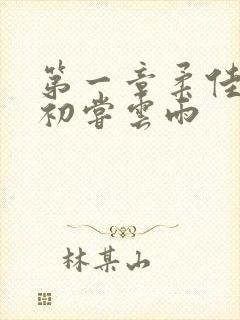 第一章柔佳
初尝雲雨
林某山